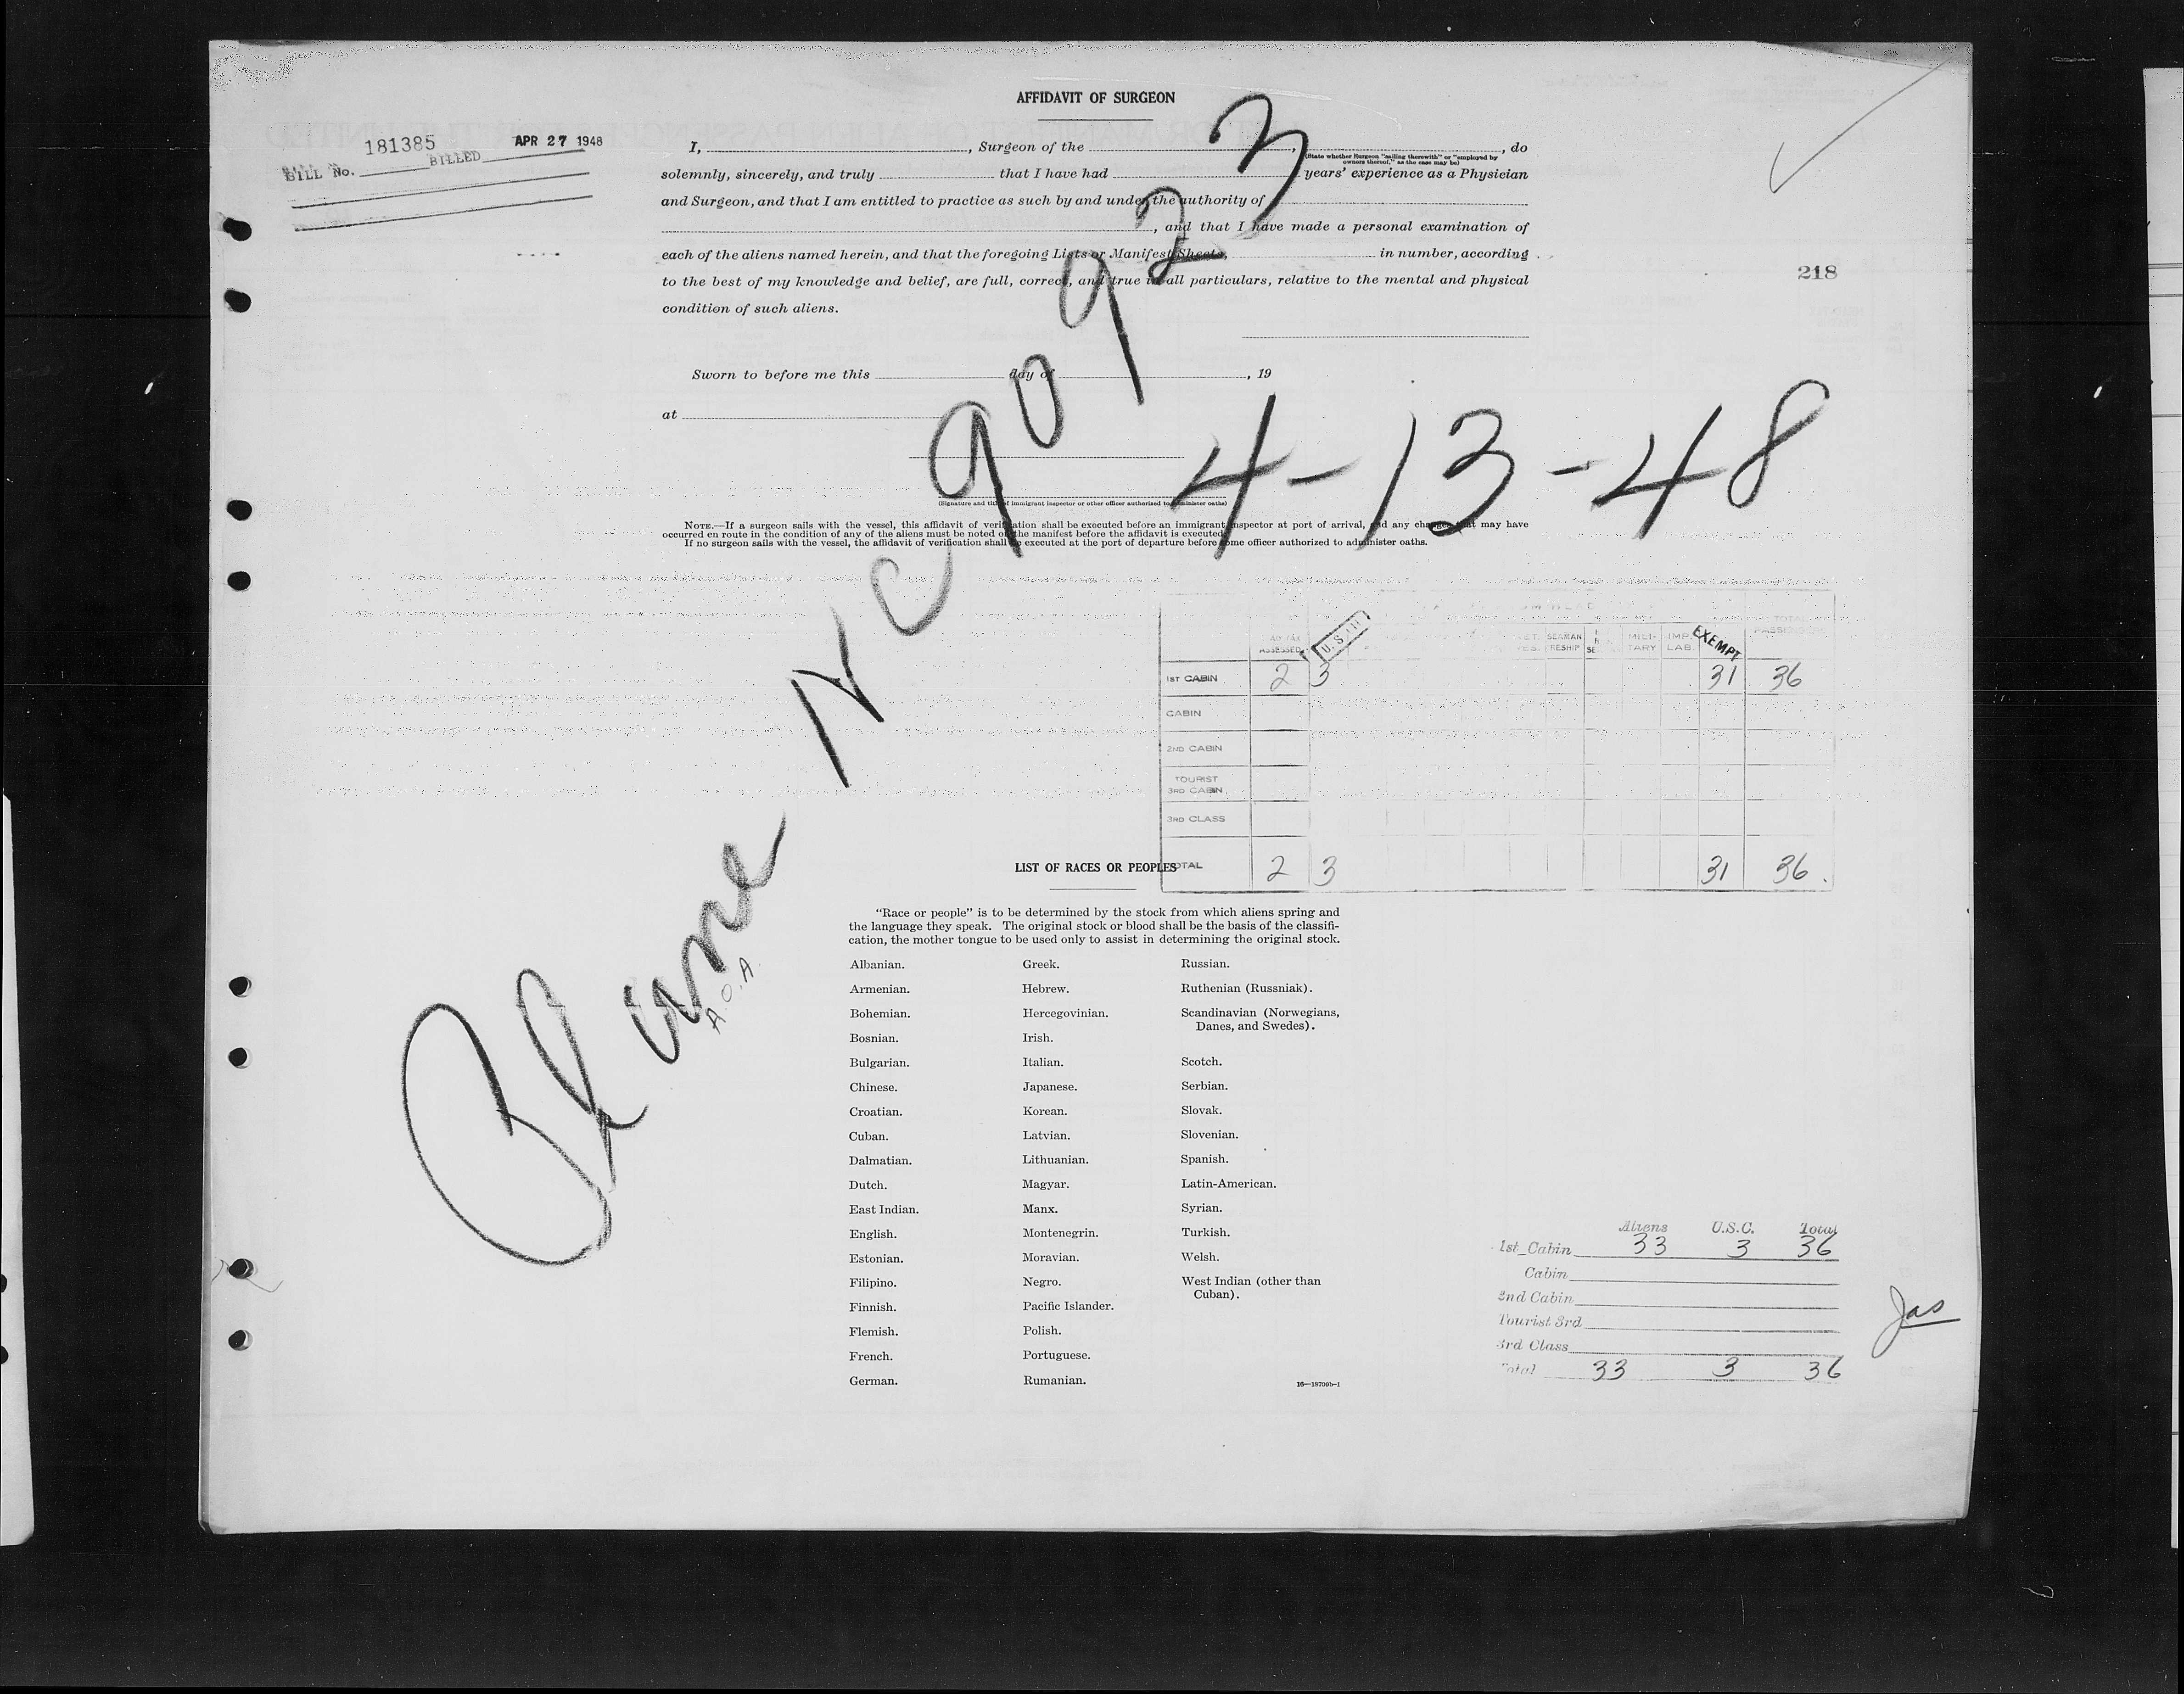 AFFIDAVIT OF SURGEON
181385 APR 27 1948
BILL No. BILLED
I, , Surgeon of the , , do
(State whether Surgeon "sailing therewith" or "employed by owners thereof," as the case may be)
solemnly, sincerely, and truly that I have had years' experience as a Physician
and Surgeon, and that I am entitled to practice as such by and under the authority of
, and that I have made a personal examination of
each of the aliens named herein, and that the foregoing Lists or Manifest Sheets, in number, according
to the best of my knowledge and belief, are full, correct, and true in all particulars, relative to the mental and physical
condition of such aliens.
218
Sworn to before me this day of , 19
at
(Signature and title of immigrant inspector or other officer authorized to administer oaths)
NOTE.—If a surgeon sails with the vessel, this affidavit of verification shall be executed before an immigrant inspector at port of arrival, and any changes that may have
occurred en route in the condition of any of the aliens must be noted on the manifest before the affidavit is executed.
If no surgeon sails with the vessel, the affidavit of verification shall be executed at the port of departure before some officer authorized to administer oaths.
Plane NC 90923
4-13-48
A.O.A.
HEAD TAX ASSESSED SEAMAN MILITARY IMP. LAB. EXEMPT TOTAL
1ST CABIN 2 3 31 36
CABIN
2ND CABIN
TOURIST
3RD CABIN
3RD CLASS
TOTAL 2 3 31 36
LIST OF RACES OR PEOPLES
"Race or people" is to be determined by the stock from which aliens spring and
the language they speak. The original stock or blood shall be the basis of the classifi-
cation, the mother tongue to be used only to assist in determining the original stock.
Albanian. Greek. Russian.
Armenian. Hebrew. Ruthenian (Russniak).
Bohemian. Hercegovinian. Scandinavian (Norwegians,
Danes, and Swedes).
Bosnian. Irish.
Bulgarian. Italian. Scotch.
Chinese. Japanese. Serbian.
Croatian. Korean. Slovak.
Cuban. Latvian. Slovenian.
Dalmatian. Lithuanian. Spanish.
Dutch. Magyar. Latin-American.
East Indian. Manx. Syrian.
English. Montenegrin. Turkish.
Estonian. Moravian. Welsh.
Filipino. Negro. West Indian (other than
Cuban).
Finnish. Pacific Islander.
Flemish. Polish.
French. Portuguese.
German. Rumanian.
16—18709b-1
Aliens U.S.C. Total
1st Cabin 33 3 36
Cabin
2nd Cabin
Tourist 3rd
3rd Class
Total 33 3 36
Jas